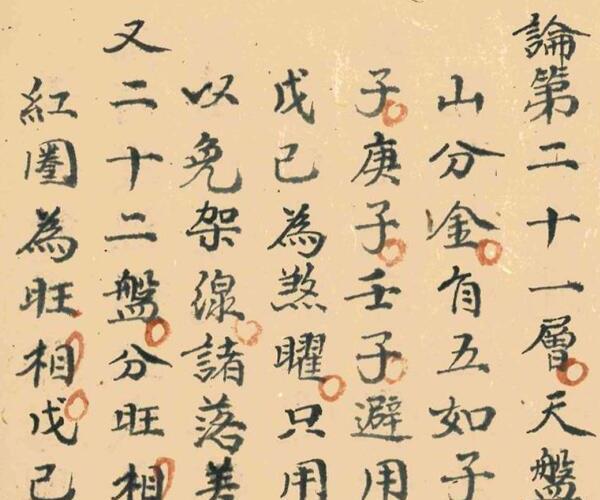 論第二十一層天盤
山分金有五如子
子庚子壬子避用
戊己為煞曜只用
以免架線諸落美
又二十二盤分旺相
紅圈為旺相戊己